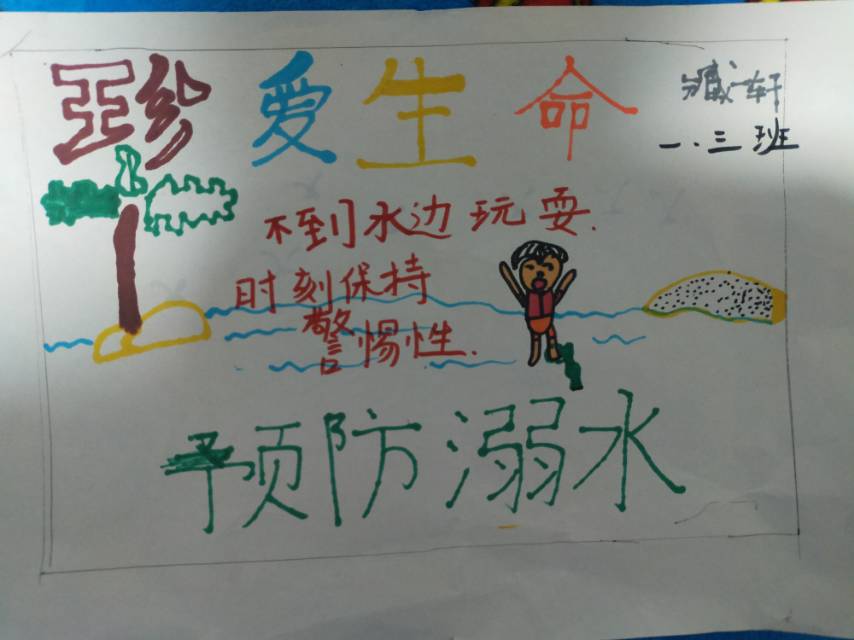 珍爱生命
轩
一.三班
不到水边玩耍.
时刻保持
警惕性.
预防溺水